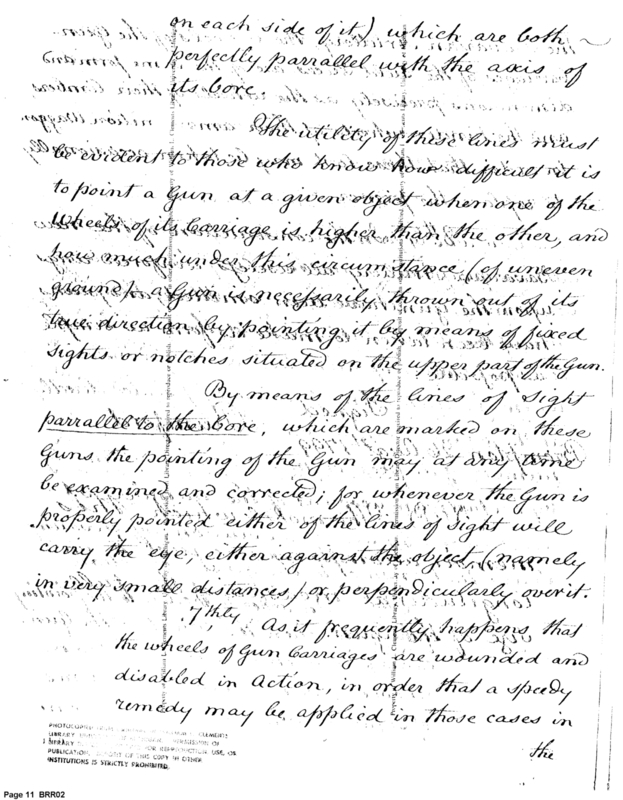 on each side of it) which are both
perfectly parrallel with the axis of
its bore.
The utility of these lines must
be evident to those who know how difficult it is
to point a Gun at a given object when one of the
Wheels of its Carriage is higher than the other, and
how much under this circumstance (of uneven
ground) a Gun is necessarily thrown out of its
true direction by pointing it by means of fixed
sights or notches situated on the upper part of the Gun.
By means of the lines of sight
parrallel to the bore, which are marked on these
Guns the pointing of the Gun may at any time
be examined and corrected; for whenever the Gun is
properly pointed either of the lines of sight will
carry the eye, either against the object, (namely
in very small distances) or perpendicularly over it.
7thly As it frequently happens that
the wheels of Gun Carriages are wounded and
disabled in Action, in order that a speedy
remedy may be applied in those cases in
the
PHOTOCOPIED CLEMENTS
LIBRARY
PUBLICATION, OF THIS COPY IN OTHER
INSTITUTIONS IS STRICTLY PROHIBITED.
Page 11 BRR02